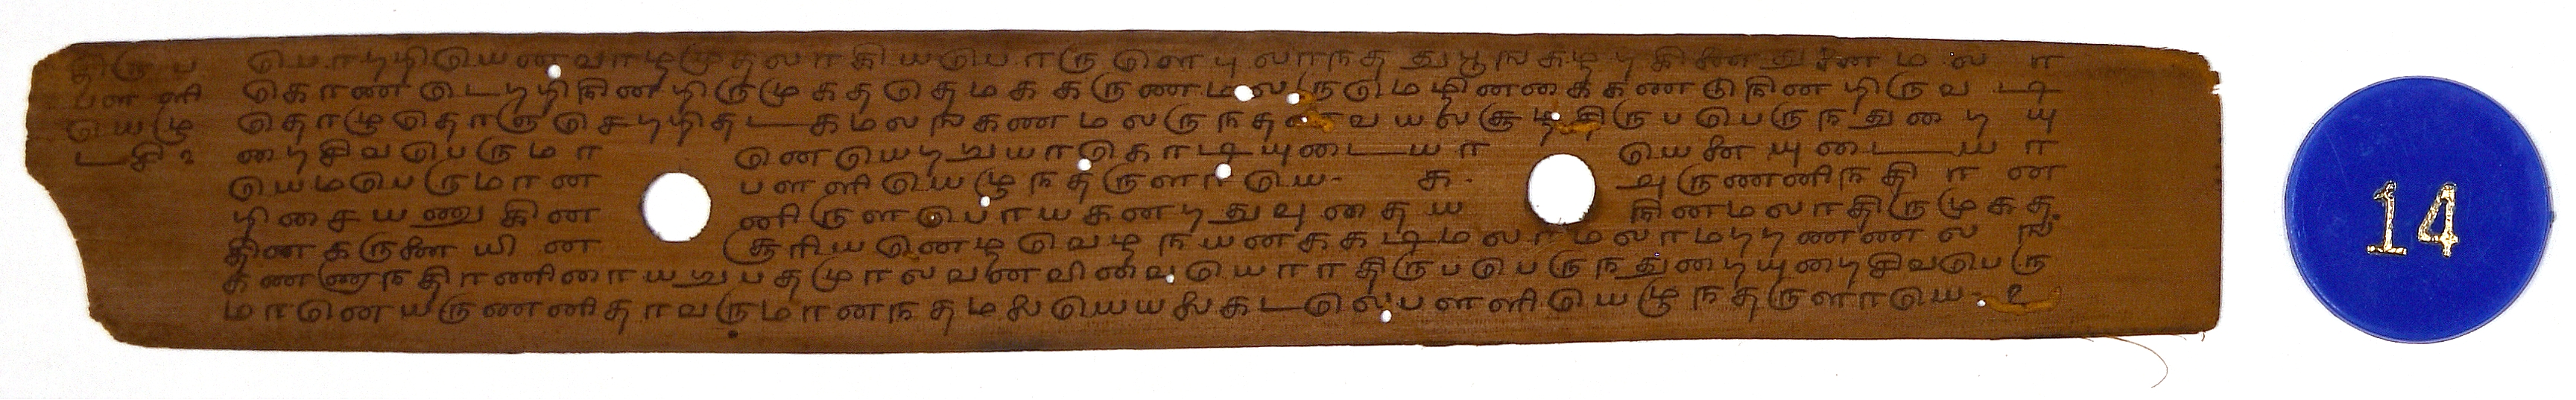 திருப பொறறியெனவாழமுதலாகியபொருளெபுலாநததுபூஙகழறகிணைதுணைமலா
பளளி கொணடெறறிநினறிருமுகததெமககருணமலருமெழினகைகணடுநினறிருவடி
யெழு தொழுதொருசெறறிதடகமலஙகணமலருநதணவயலசூழதிருபபெருநதுறையு
டசி௨ றைசிவபெருமா னெயெறறுயாகொடியுடையா யெனையுடையா
யெமபெருமான பளளியெழுநதருளாயெ- க- அருணணிநதிரான
றிசையணுகின னிருளபொயகனறதுவுதைய நினமலாதிருமுகத
தினகருணையின சூரியனெழவெழநயனககடிமலாமலாமறறணணலங
கணணாநதிரணிரையறுபதமுரலவன திருபபெருநதுறையுறைசிவபெரு
மானெயருணணிதிதாவருமானநதமலையெயலைகடலெபளளியெழுநதருளாயெ- ௨
14